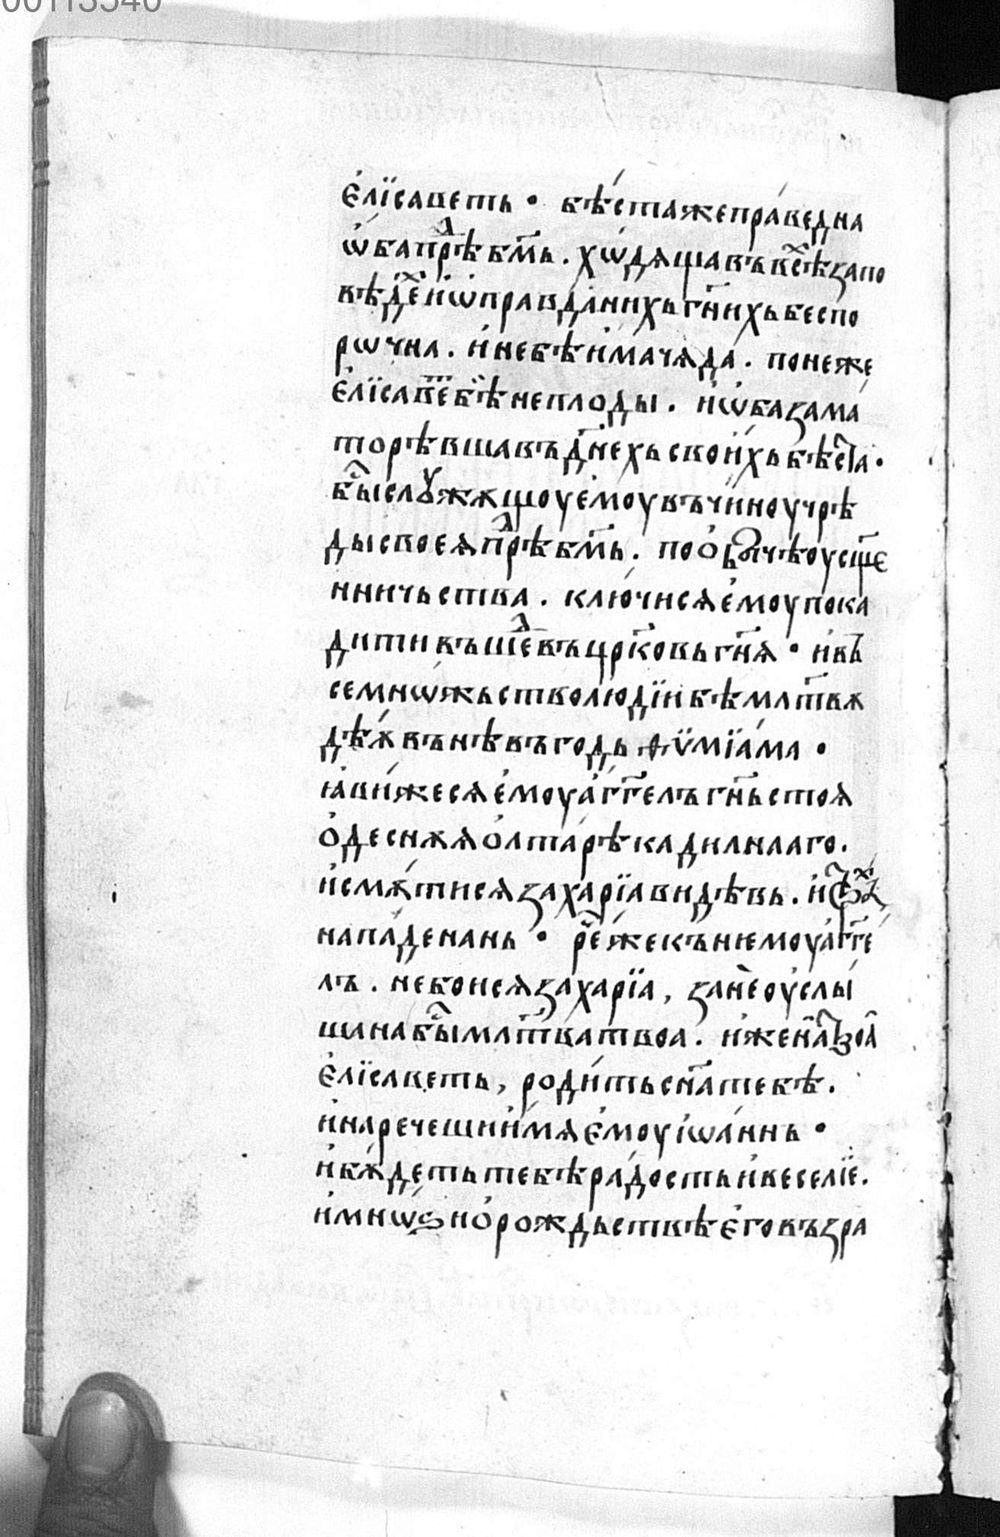 00113540
є҆лїсаветь • бѣ́стажепра́ведна
ѡ҆бапрⷣѣбм҃ь . хѡ́дѧщавъвсⷯѣзапо
вѣде́ⷯиѡ҆правда́нихьгн҃ихьбеспо
рѡчна . и҆небѣи҆мачѧда . понеже
є҆лїсавⷮебѣ̀неплоды . иѡ҆базама
торѣвшавъдн҃ехьсвои́хьбѣстⷭа •
бⷭыслꙋжѫщоуємоувъчи́ноучрѣ
дысвоеѧпрⷣѣбм҃ь . поо҆бꙑчѣоусщ҃е
нничьства . ключи́сѧє҆моупока
дитивъшеⷣвъцр҃ковьгн҃ѧ • ивъ
семнѡ́жьстволюдїибѣмлт҃вѫ
дѣѫ́вънѣвъгодьѳѵ̈мїа́ма •
ꙗ҆ви́жесѧє҆моуа҆́гг҃елъгн҃ьстоѧ
о҆деснѫѧо҆лта́рѣкадилнааго .
и҆смѫ́тисѧзаха́рїавидѣвь . и҆страⷯ
напа́денань • рⷱе́жекъниемоуа҆́гг҃е
лъ . небоисѧзаха́рїа , занѐоуслы́
шанабⷭымлт҃ватвоа . и҆жена̀твоа̀
є҆лїсаветь , роди́тьсн҃атебѣ .
и҆нарече́шии҆́мѧє҆моуіѡа́ннь •
и҆бѫ́детьтебѣра́достьи҆веселїе .
и҆мнѡѕио҆рождьствѣє҆говъзра